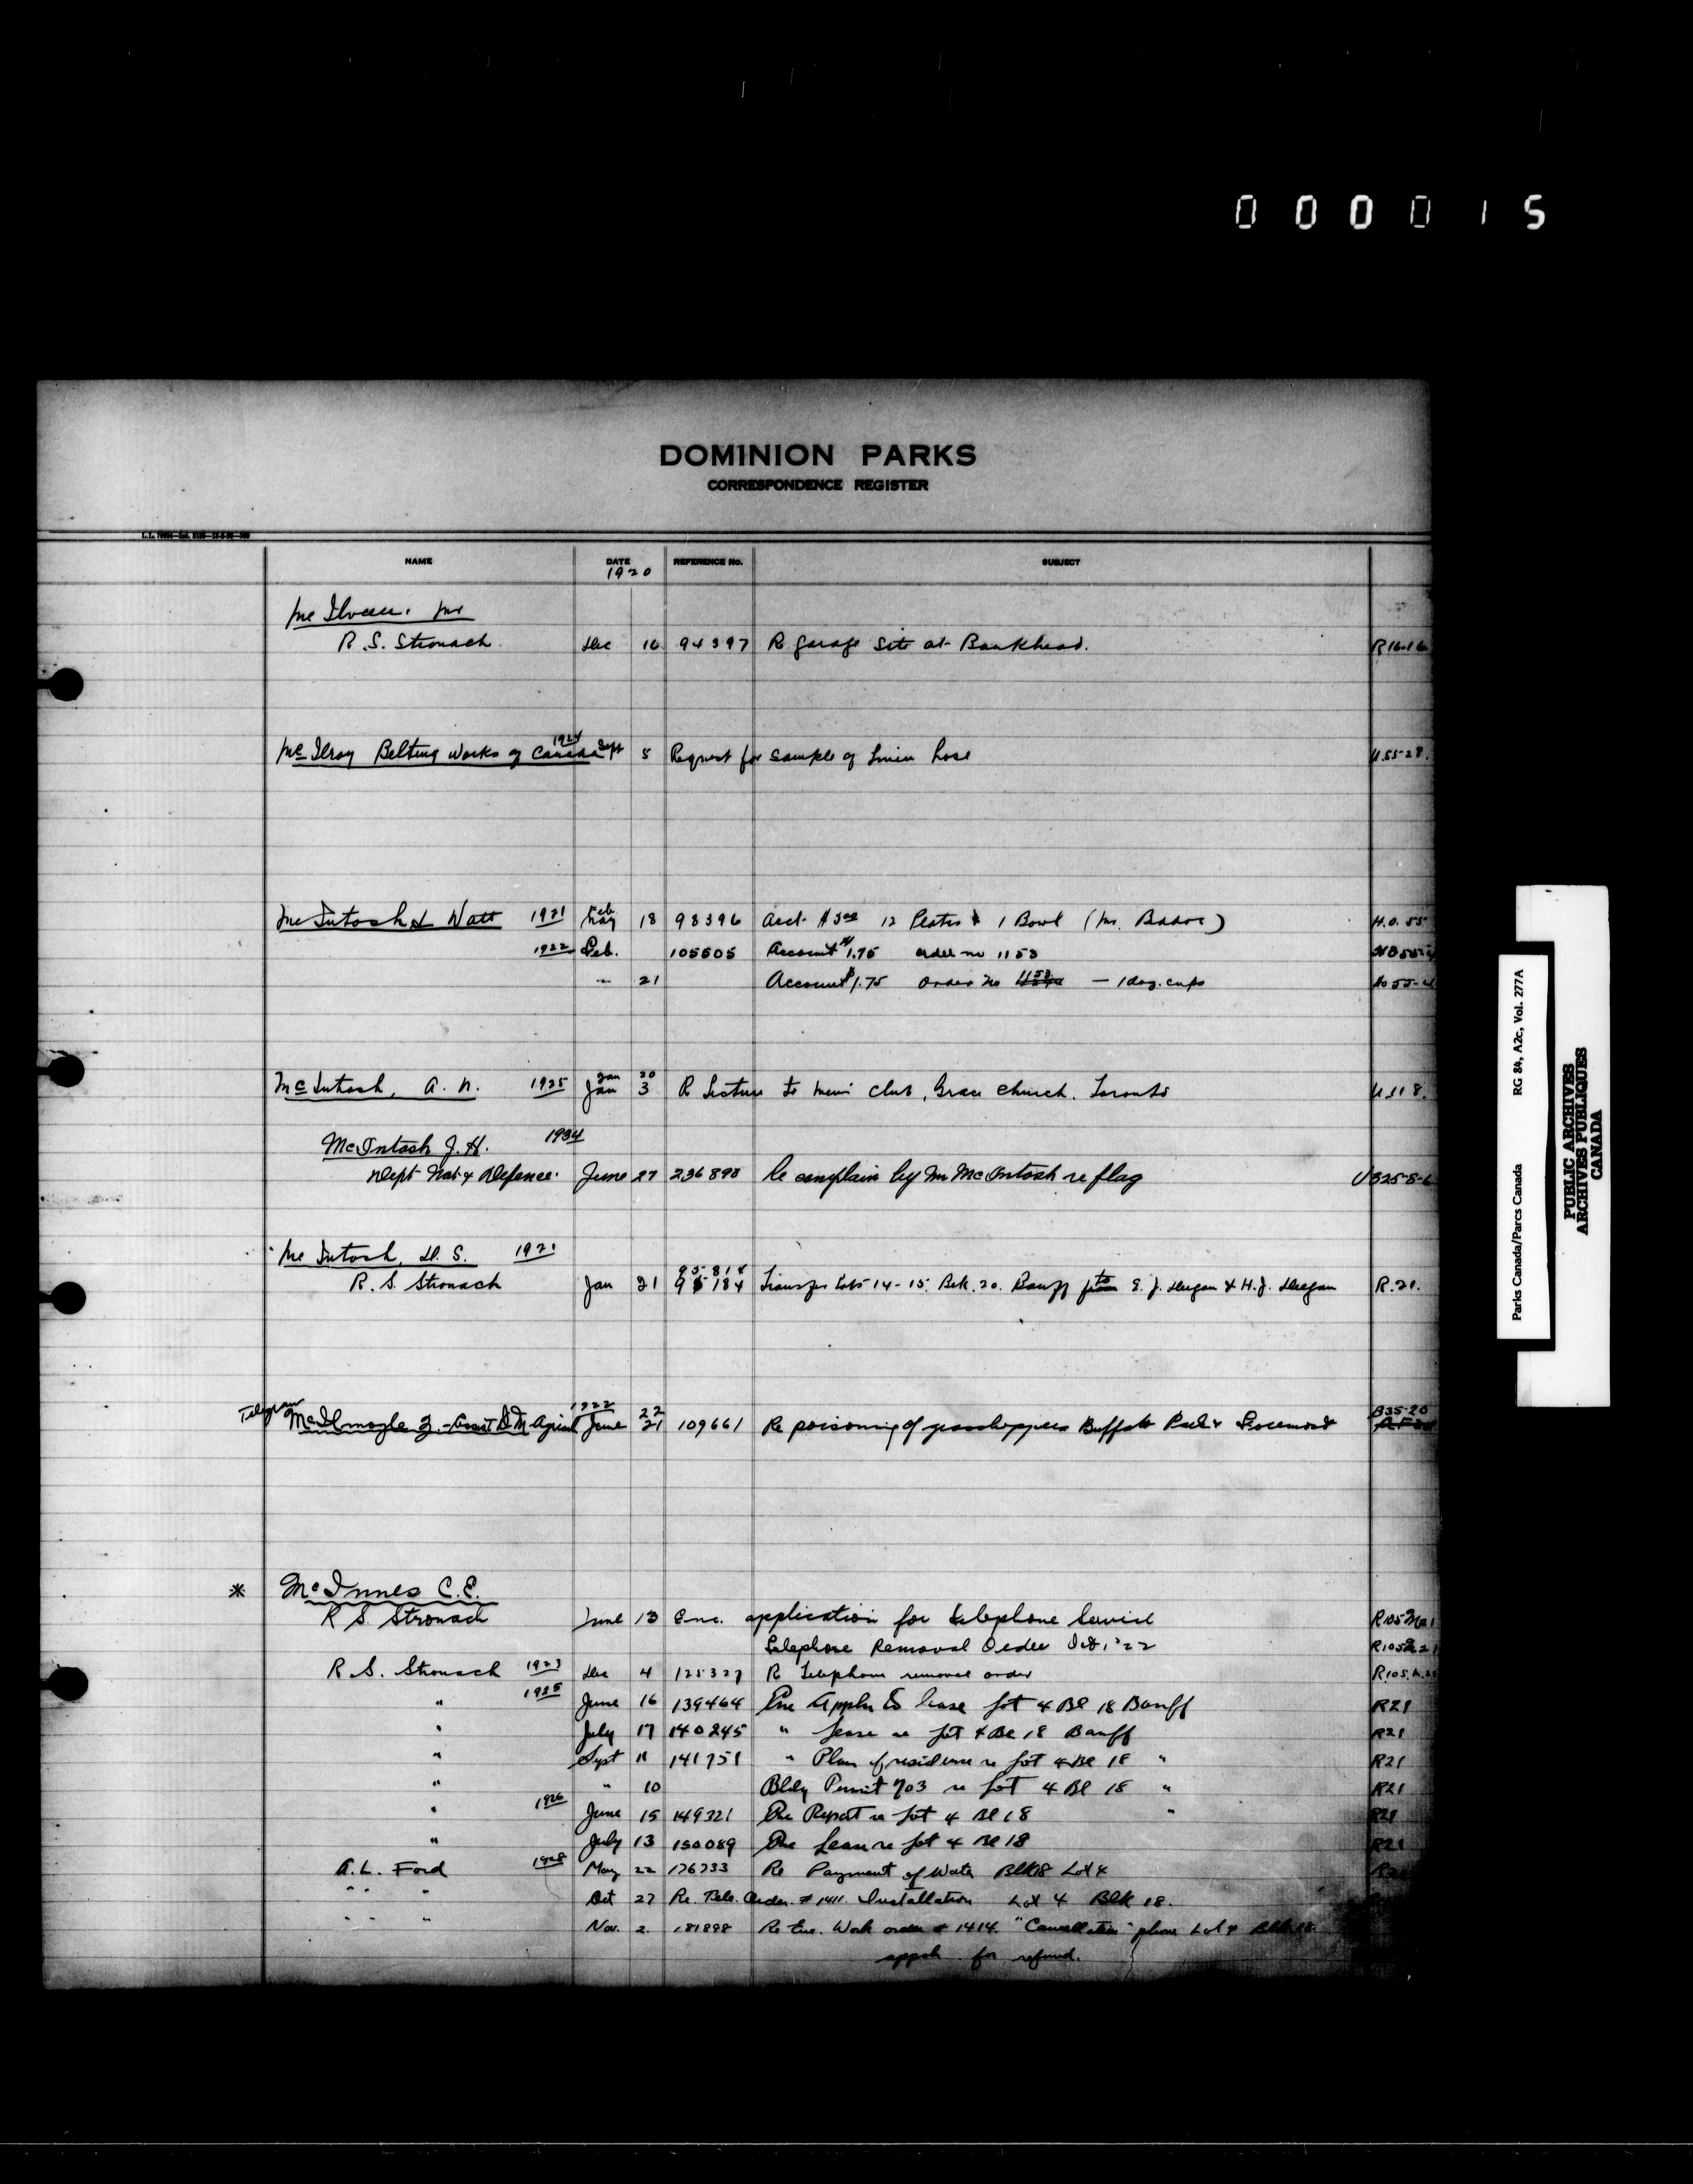 000015
DOMINION PARKS
CORRESPONDENCE REGISTER
NAME DATE REFERENCE No. SUBJECT
1920
Mc Ilveen. Mr
R. S. Stronach Dec 16 94397 Re garage site at Bankhead. R16-16
Mc Ilroy Belting Works of Canada 1924 Sept 5 Request for sample of linen hose U55-28.
McIntosh & Watt 1921 Feb 18 98396 Acct. $3.00 12 Plates & 1 Bowl (Mr. ) H.O. 55
1922 Feb. 105505 Account $1.75 order no 1153
" 21 Account $1.75 Order No 1153 — 1 doz. cups Ho 55-4
McIntosh, A. N. 1925 Jan 20
Jan 3 Re Lecture to Mens Club, Grace Church. Toronto U118.
McIntosh J. H. 1934
Dept Nat'l Defence. June 27 236890 Re complain by Mr McIntosh re flag U325-8-6
Mc Intosh, D. S. 1921
95818
R. S. Stronach Jan 21 95184 Transfer Lots 14-15. Blk. 20. Banff to E. J. Deegan & H. J. Deegan R.21.
Telegram 1922 22 B35-20
June 21 109661 Re poisoning of grasshoppers Buffalo Park & Foremost
* McInnes C.E.
R S. Stronach June 13 Enc. application for telephone Service
Telephone Removal Order Oct 1 '22
R. S. Stronach 1923 Dec 4 125327 Re Telephone removal order
" 1925 June 16 139464 Enc Appln to lease Lot 4 Bl 18 Banff R21
" July 17 140245 " lease re Lot 4 Bl 18 Banff R21
" Sept 11 141751 " Plan of residence re Lot 4 Bl 18 " R21
" " 10 Bldg Permit 703 re Lot 4 Bl 18 " R21
" 1926 June 15 149321 Enc Report re Lot 4 Bl 18 " R21
" July 13 150089 Enc Lease re Lot 4 Bl 18 R21
A. L. Ford 1928 May 22 176733 Re Payment of Water Blk 18 Lot 4
" " " Oct 27 Re. Tele. Order. # 1411. Installation Lot 4 Blk 18.
" " " Nov. 2. 181898 Re Enc. Work order # 1414. "Cancellation" phone Lot 4 Blk 18.
appln. for refund.
Parks Canada/Parcs Canada RG 84, A2c, Vol. 277A
PUBLIC ARCHIVES
ARCHIVES PUBLIQUES
CANADA